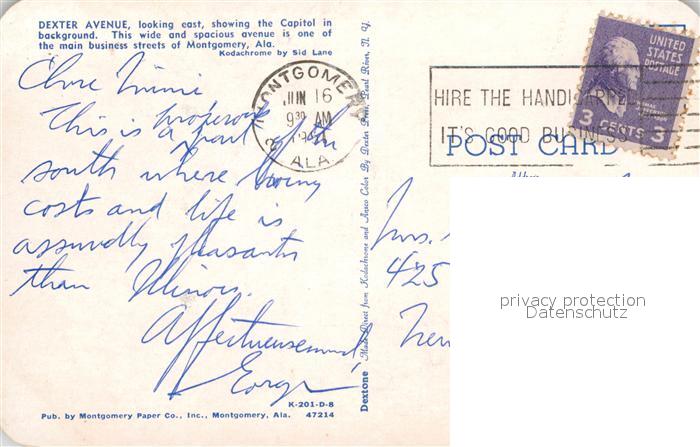 DEXTER AVENUE, looking east, showing the Capitol in
background. This wide and spacious avenue is one of
the main business streets of Montgomery, Ala.
Kodachrome by Sid Lane
MONTGOMERY
JUN 16
9 30 AM
ALA.
HIRE THE HANDICAPPED
IT'S GOOD BUSINESS
UNITED
STATES
POSTAGE
3 CENTS 3
POST CARD
Chère Mimi
prosperous
This is a part of the
south where living
costs and life is
assuredly pleasanter
than Illinois.
Affectueusement,
K-201-D-8
Pub. by Montgomery Paper Co., Inc., Montgomery, Ala. 47214
Dextone Made Direct from Kodachrome and Ansco Color By Dexter Press, Pearl River, N. Y.
Mrs.
425
privacy protection
Datenschutz